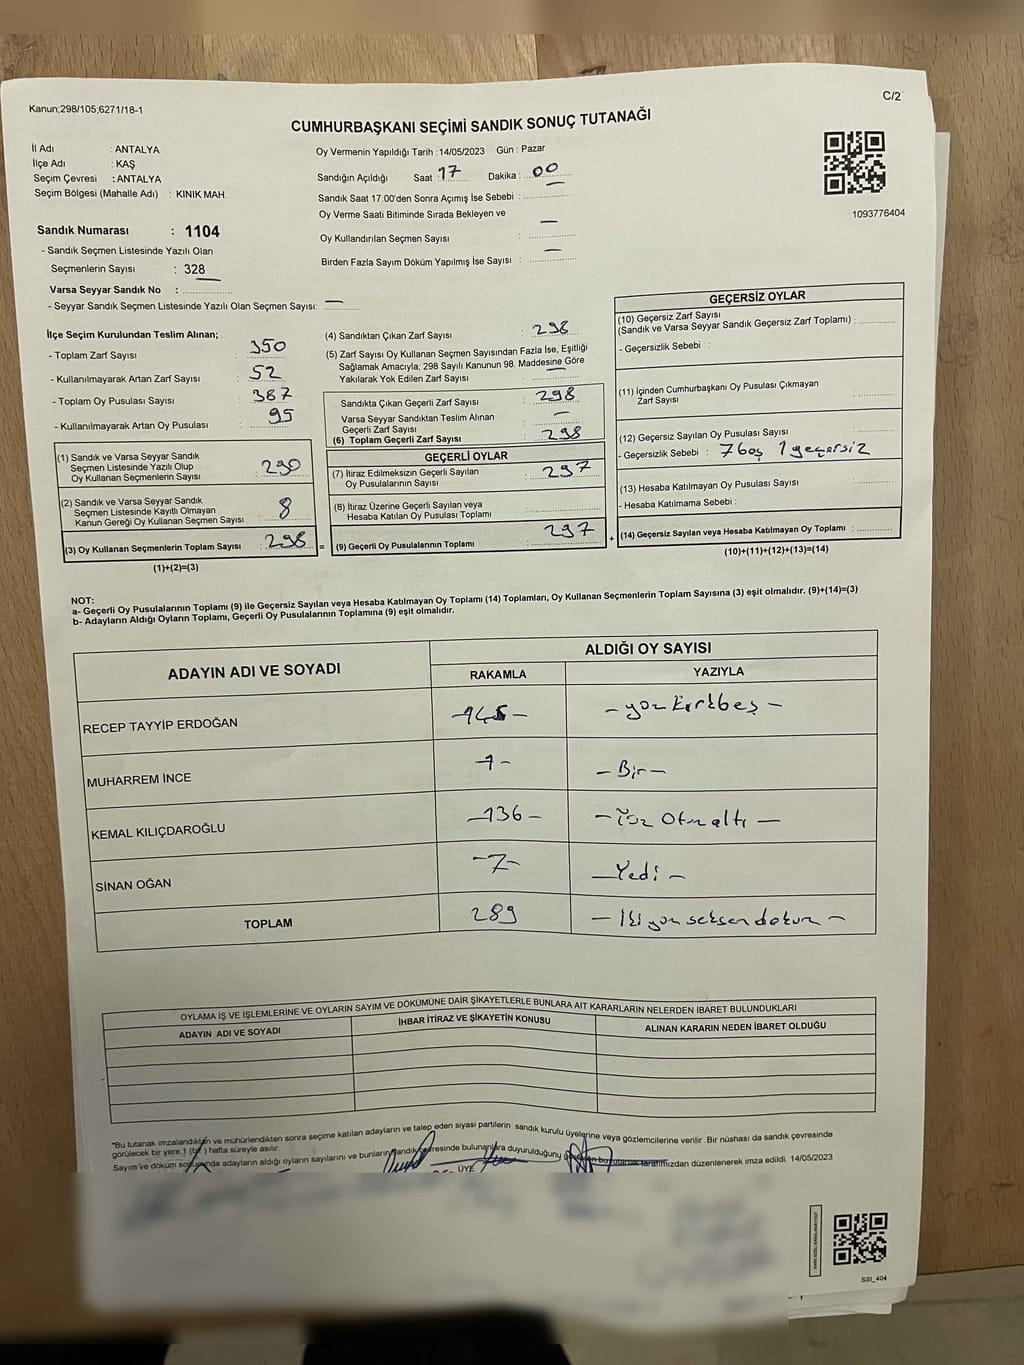 Kanun;298/105;6271/18-1
C/2
CUMHURBAŞKANI SEÇİMİ SANDIK SONUÇ TUTANAĞI
İl Adı : ANTALYA
İlçe Adı : KAŞ
Seçim Çevresi : ANTALYA
Seçim Bölgesi (Mahalle Adı) : KINIK MAH.
Oy Vermenin Yapıldığı Tarih : 14/05/2023 Gün : Pazar
Sandığın Açıldığı Saat 17 Dakika : 00
Sandık Saat 17:00'den Sonra Açımış İse Sebebi :
Oy Verme Saati Bitiminde Sırada Bekleyen ve
Oy Kullandırılan Seçmen Sayısı : —
Birden Fazla Sayım Döküm Yapılmış İse Sayısı : —
1093776404
Sandık Numarası : 1104
- Sandık Seçmen Listesinde Yazılı Olan
Seçmenlerin Sayısı : 328
Varsa Seyyar Sandık No :
- Seyyar Sandık Seçmen Listesinde Yazılı Olan Seçmen Sayısı: —
İlçe Seçim Kurulundan Teslim Alınan;
- Toplam Zarf Sayısı : 350
- Kullanılmayarak Artan Zarf Sayısı : 52
- Toplam Oy Pusulası Sayısı : 387
- Kullanılmayarak Artan Oy Pusulası : 95
(1) Sandık ve Varsa Seyyar Sandık
Seçmen Listesinde Yazılı Olup
Oy Kullanan Seçmenlerin Sayısı : 290
(2) Sandık ve Varsa Seyyar Sandık
Seçmen Listesinde Kayıtlı Olmayan
Kanun Gereği Oy Kullanan Seçmen Sayısı : 8
(3) Oy Kullanan Seçmenlerin Toplam Sayısı : 298 =
(1)+(2)=(3)
(4) Sandıktan Çıkan Zarf Sayısı : 298
(5) Zarf Sayısı Oy Kullanan Seçmen Sayısından Fazla İse, Eşitliği
Sağlamak Amacıyla; 298 Sayılı Kanunun 98. Maddesine Göre
Yakılarak Yok Edilen Zarf Sayısı : —
Sandıkta Çıkan Geçerli Zarf Sayısı : 298
Varsa Seyyar Sandıktan Teslim Alınan
Geçerli Zarf Sayısı : —
(6) Toplam Geçerli Zarf Sayısı : 298
GEÇERLİ OYLAR
(7) İtiraz Edilmeksizin Geçerli Sayılan
Oy Pusulalarının Sayısı : 297
(8) İtiraz Üzerine Geçerli Sayılan veya
Hesaba Katılan Oy Pusulası Toplamı :
(9) Geçerli Oy Pusulalarının Toplamı : 297 +
GEÇERSİZ OYLAR
(10) Geçersiz Zarf Sayısı
(Sandık ve Varsa Seyyar Sandık Geçersiz Zarf Toplamı) :
- Geçersizlik Sebebi :
(11) İçinden Cumhurbaşkanı Oy Pusulası Çıkmayan
Zarf Sayısı :
(12) Geçersiz Sayılan Oy Pusulası Sayısı :
- Geçersizlik Sebebi : 7 boş 1 geçersiz
(13) Hesaba Katılmayan Oy Pusulası Sayısı :
- Hesaba Katılmama Sebebi :
(14) Geçersiz Sayılan veya Hesaba Katılmayan Oy Toplamı :
(10)+(11)+(12)+(13)=(14)
NOT:
a- Geçerli Oy Pusulalarının Toplamı (9) ile Geçersiz Sayılan veya Hesaba Katılmayan Oy Toplamı (14) Toplamları, Oy Kullanan Seçmenlerin Toplam Sayısına (3) eşit olmalıdır. (9)+(14)=(3)
b- Adayların Aldığı Oyların Toplamı, Geçerli Oy Pusulalarının Toplamına (9) eşit olmalıdır.
ADAYIN ADI VE SOYADI ALDIĞI OY SAYISI
RAKAMLA YAZIYLA
RECEP TAYYİP ERDOĞAN -145- -yüz kırkbeş-
MUHARREM İNCE -1- -Bir-
KEMAL KILIÇDAROĞLU -136- -Yüz Otuzaltı-
SİNAN OĞAN -7- -Yedi-
TOPLAM 289 -İkiyüzseksendokuz-
OYLAMA İŞ VE İŞLEMLERİNE VE OYLARIN SAYIM VE DÖKÜMÜNE DAİR ŞİKAYETLERLE BUNLARA AİT KARARLARIN NELERDEN İBARET BULUNDUKLARI
ADAYIN ADI VE SOYADI İHBAR İTİRAZ VE ŞİKAYETİN KONUSU ALINAN KARARIN NEDEN İBARET OLDUĞU
*Bu tutanak imzalandıktan ve mühürlendikten sonra seçime katılan adayların ve talep eden siyasi partilerin sandık kurulu üyelerine veya gözlemcilerine verilir .Bir nüshası da sandık çevresinde
görülecek bir yere,1 (bir) hafta süreyle asılır.
Sayım ve döküm sonunda adayların aldığı oyların sayılarını ve bunların sandık çevresinde bulunanlara duyurulduğunu tarafımızdan düzenlenerek imza edildi. 14/05/2023
ÜYE
SSI_404